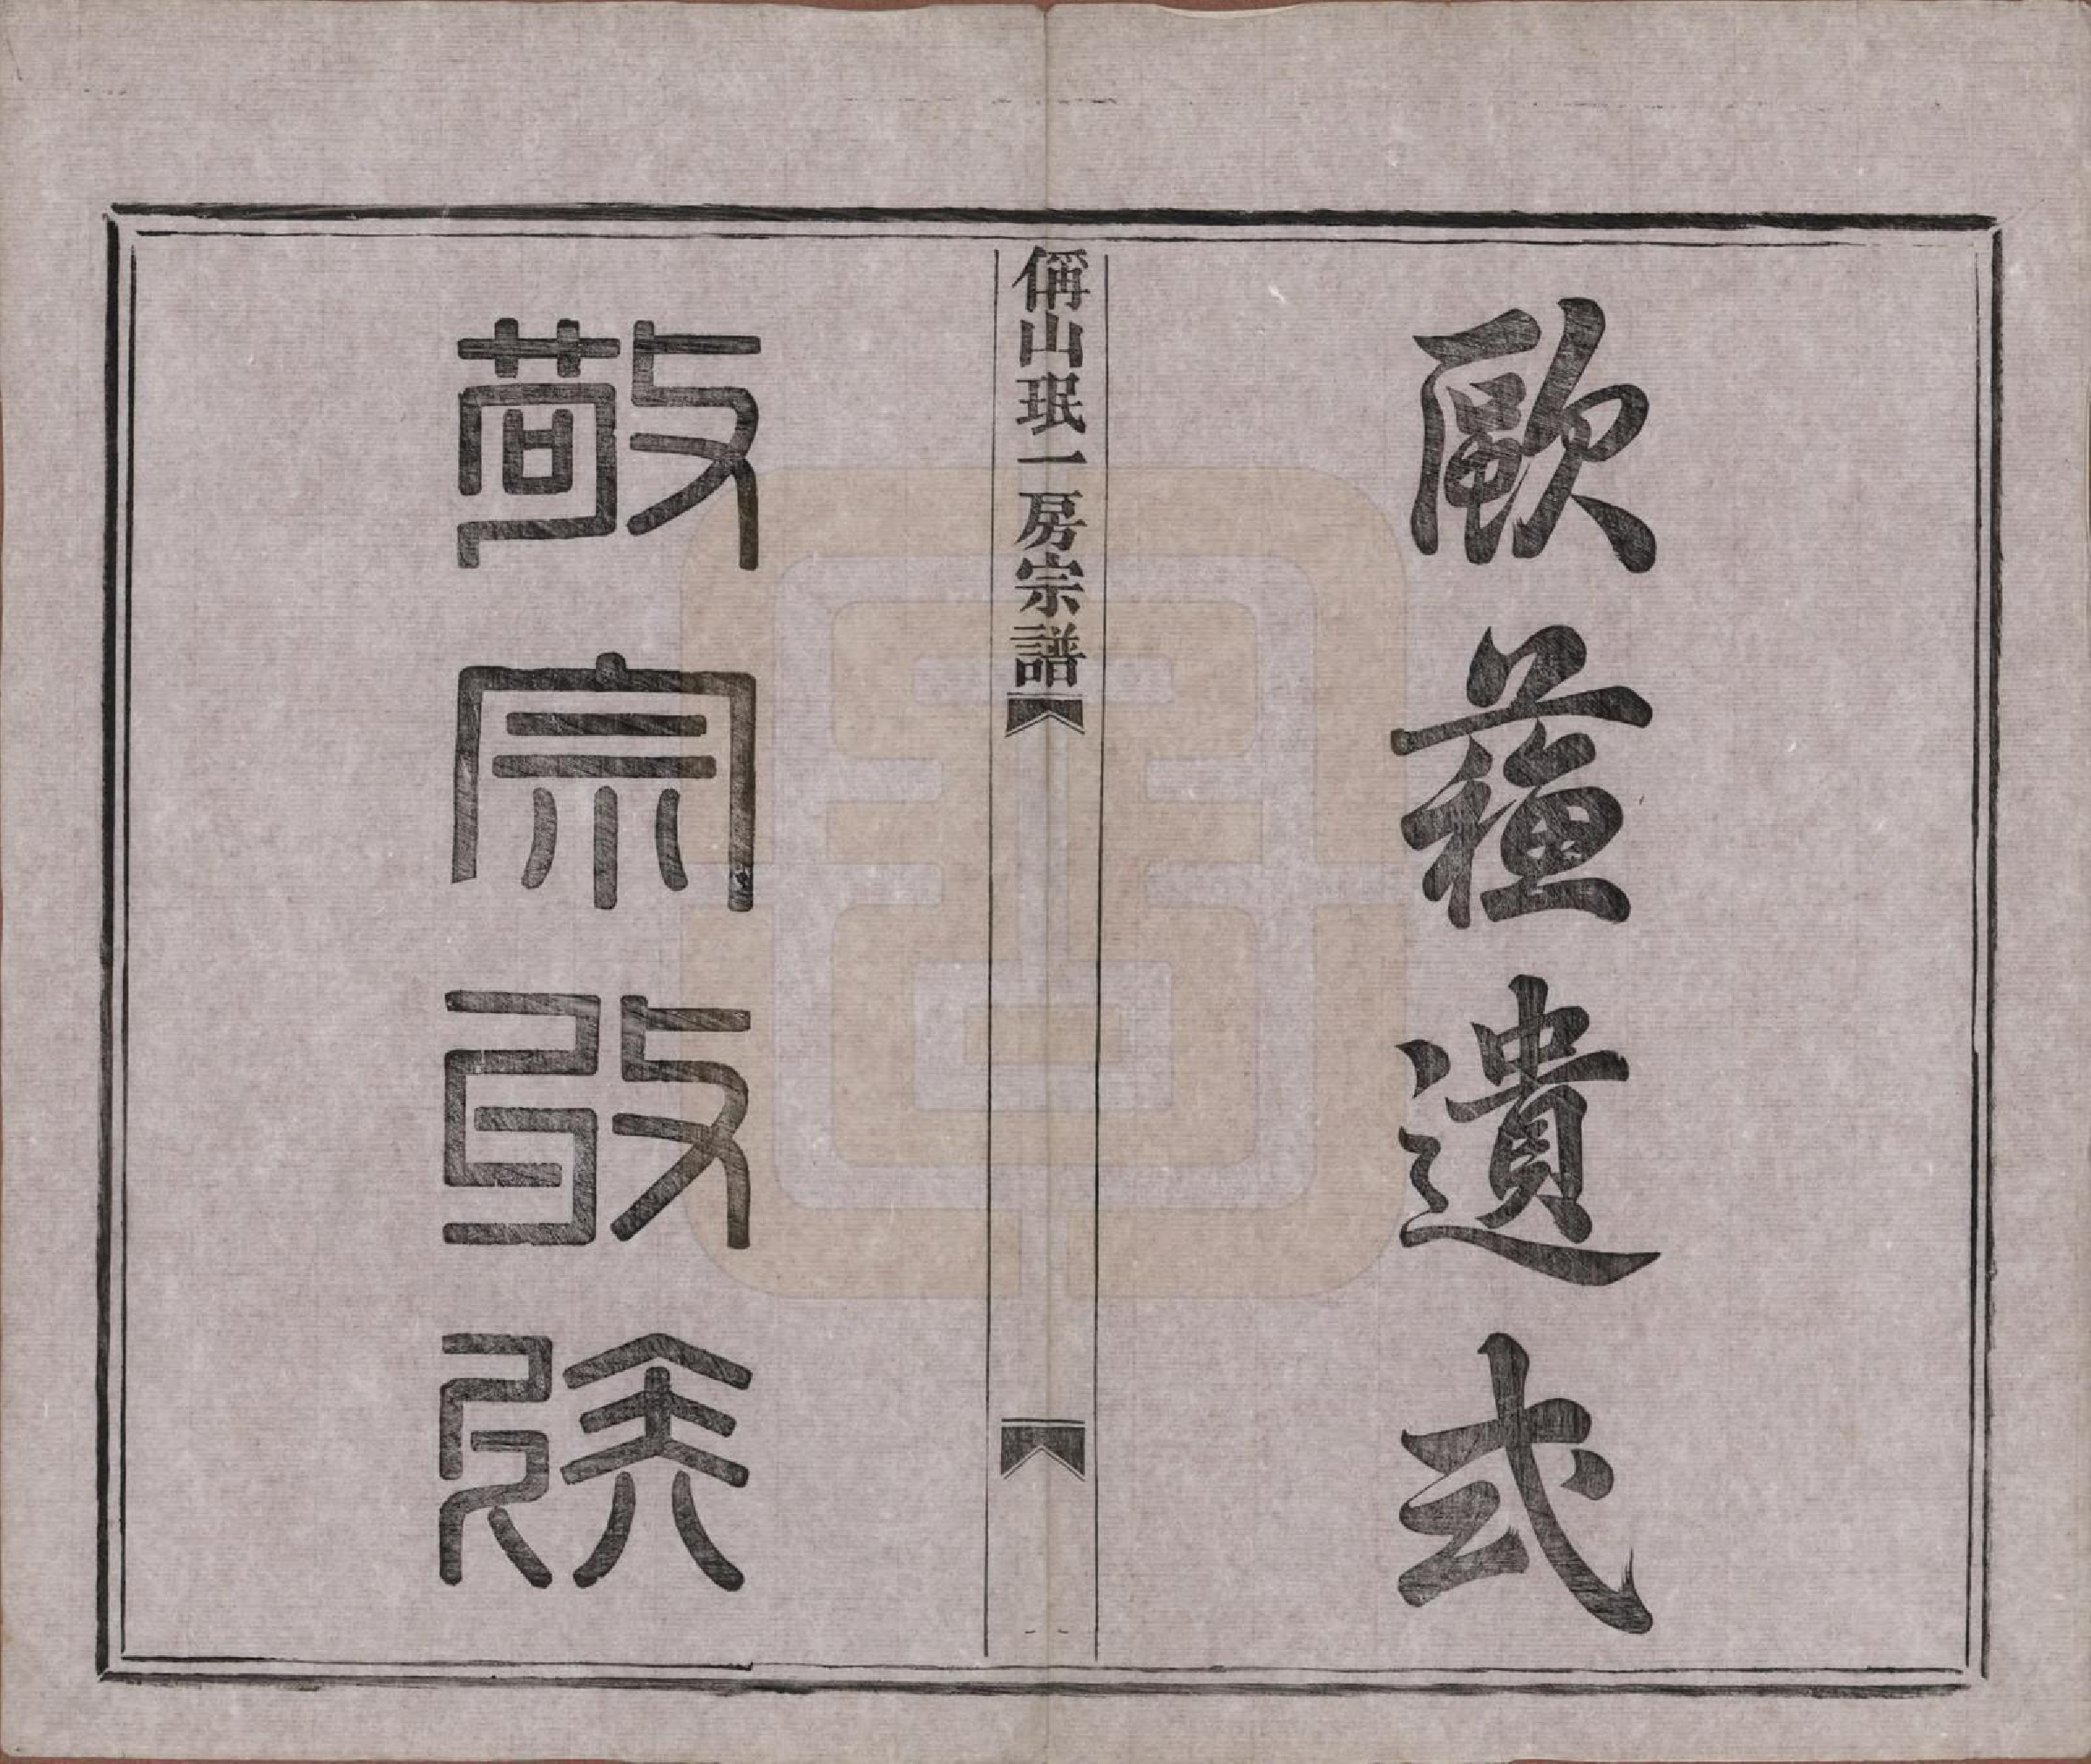 歐蘓遺式
偁山珉一房宗譜
敬宗收族